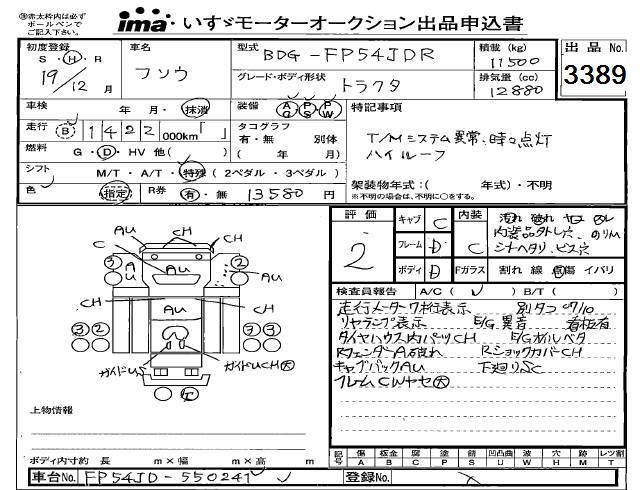 ※赤太枠内は必ず
ボールペンで
ご記入下さい。
ima いすゞモーターオークション出品申込書
初度登録
S・H・R
19/12 月
車名
フソウ
型式
BDG-FP54JDR
グレード・ボディ形状
トラクタ
積載 (kg)
11500
排気量 (cc)
12880
出品 No.
3389
車検 年・月・抹消
装備 AC PS PW
走行 (B) 1422 000km「 」
タコグラフ
有・無 別体
( 年 月)
燃料 G・D・HV 他( )
シフト M/T・A/T・特殊 ( 2ペダル・3ペダル )
色 指定 R券 有・無 13580 円
特記事項
T/Mシステム異常、時々点灯
ハイルーフ
架装物年式:( 年式)・不明
※不明の場合は、不明に○をする。
評価
2
キャブ C
フレーム D
ボディ D
内装
C
汚れ 破れ ヤケ コゲ
内装品外し穴、のりM
シートヘタリ、ビス穴
Fガラス 割れ 線 点傷 イバリ
検査員報告 A/C ( ✓ ) B/T ( )
走行メーター7桁表示 別タコ 07/10
リヤランプ表示 E/G異音 看板有
タイヤハウス内パーツCH E/Gオルベタ
RフェンダーA破れ RショックカバーCH
キャブバックAU 下廻りSC
フレームCWヤセ大
AU CH
C AU
3 AU 3 AU
CH AU CH
3 2 2 3
ガイドUS ガイドUCH大
上物情報
ボディ内寸約 長 m×幅 m×高 m
記号 傷 A 板金 B 腐 C 塗 P 錆 S 凹凸曲 U 波 W 穴 H 跡 M レツ割 T
車台No. FP54JD-550241
登録No.